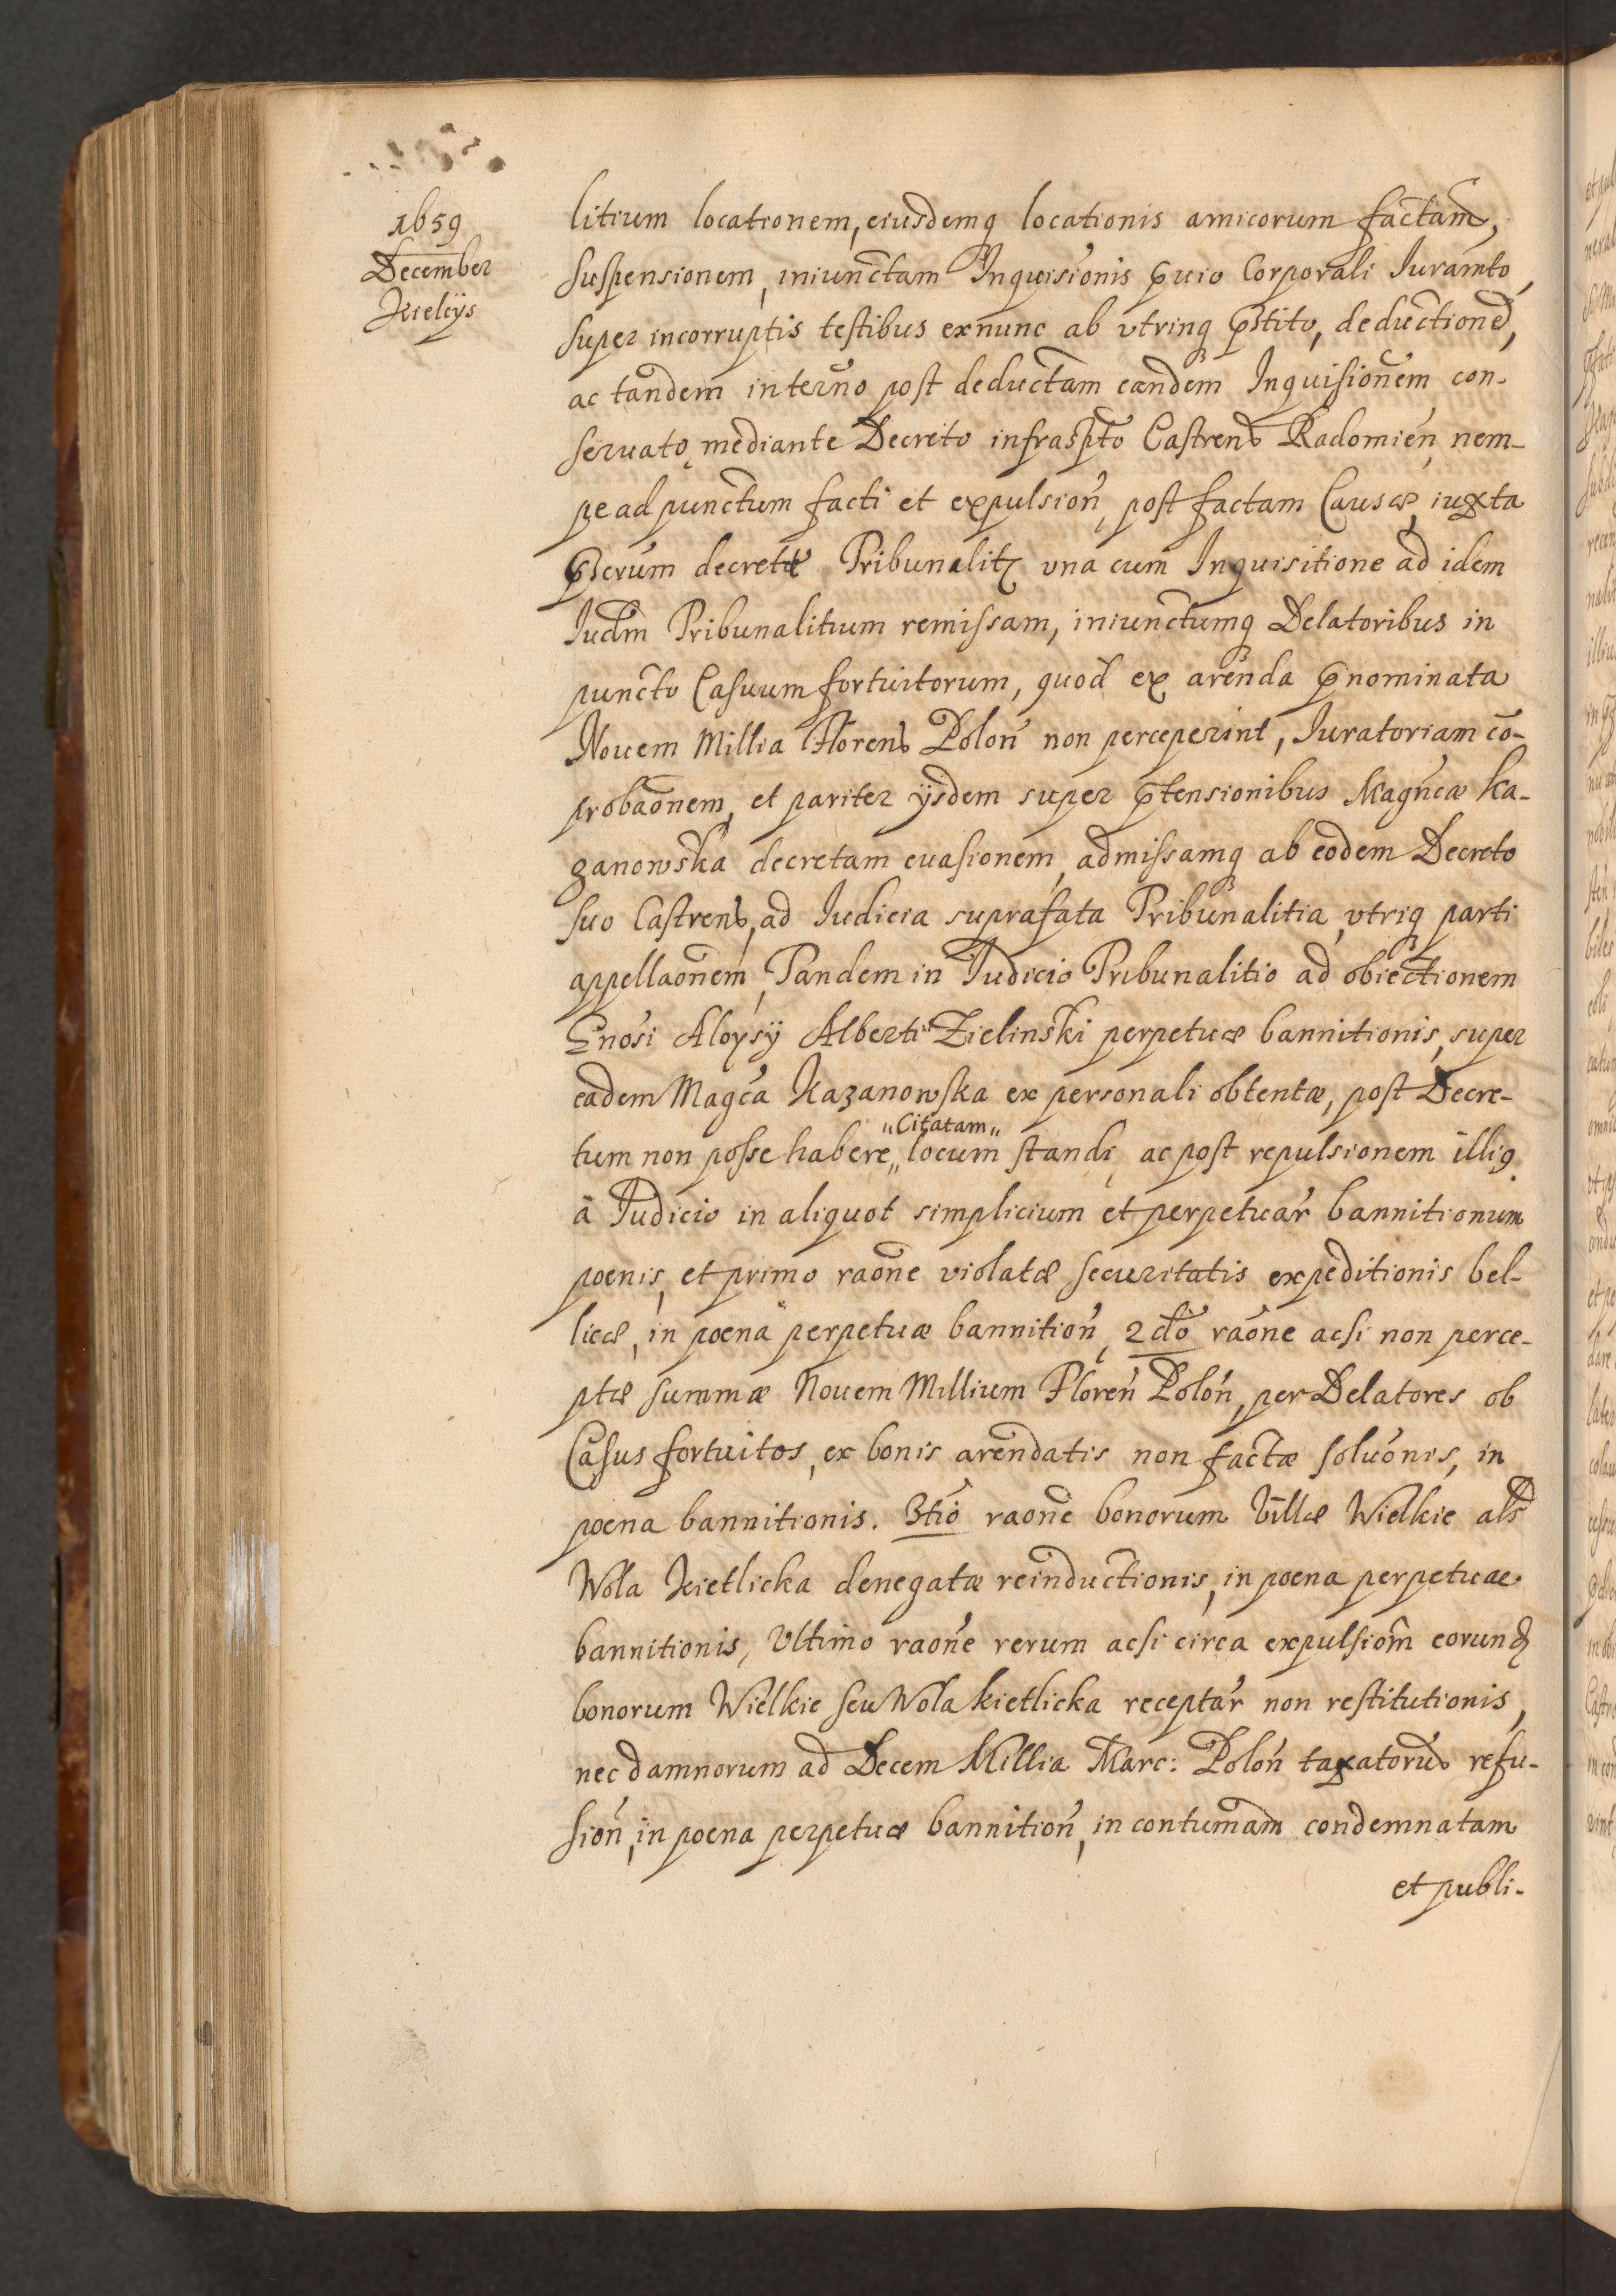 1659
December
Kielcijs
litium locationem, eiusdemq locationis amicorum factam,
suspensionem, iniunctam Inquisionis pruio Corporali Iuramto,
super incorruptis testibus exnunc ab vtrinq prstito, deductione,
ac tandem in terno post deductam eandem Inquisionem con-
seruato mediante Decreto infraspto Castrens Radomien, nem-
pe ad punctum facti et expulsion, post factam Causæ, iuxta
decretæ Tribunalit, vna cum Inquisitione ad idem
Iudm Tribunalitium remissam, iniunctumq Delatoribus in
puncto Casuum fortuitorum, quod ex arenda prnominata
Nouem Millia Floren Polon non perceperint, Iuratoriam co-
probaonem, et pariter ijsdem super prtensionibus Magncæ Ka-
zanowska decretam euasionem, admissamq ab eodem Decreto
suo Castrens, ad Iudicia suprafata Tribunalitia, vtriq parti
appellaonem, Tandem in Iudicio Tribunalitio ad obiectionem
Gnosi Aloysij Alberti Zielinski perpetuæ bannitionis, super
eadem Magca Kazanowska ex personali obtentæ, post Decre-
"Citatam"
tum non posse habere,, locum standi, ac post repulsionem illig
à Iudicio in aliquot simplicium et perpetuar bannitionum
poenis, et primo raone violatæ securitatis expeditionis bel-
licæ, in poena perpetuæ bannition, 2do raone acsi non perce-
ptæ summæ Nouem Millium Floren Polon, per Delatores ob
Casus fortuitos, ex bonis arendatis non factæ soluonis, in
poena bannitionis. 3tio raone bonorum Villæ Wielkie als
Wola Kietlicka denegatæ reinductionis, in poena perpetuae
bannitionis, Vltimo raone rerum acsi circa expulsiom eorund
bonorum Wielkie seu Wola kietlicka receptar non restitutionis,
nec damnorum ad Decem Millia Marc: Polon taxatoru refu-
sion, in poena perpetuæ bannition, in contumam condemnatam
et publi-